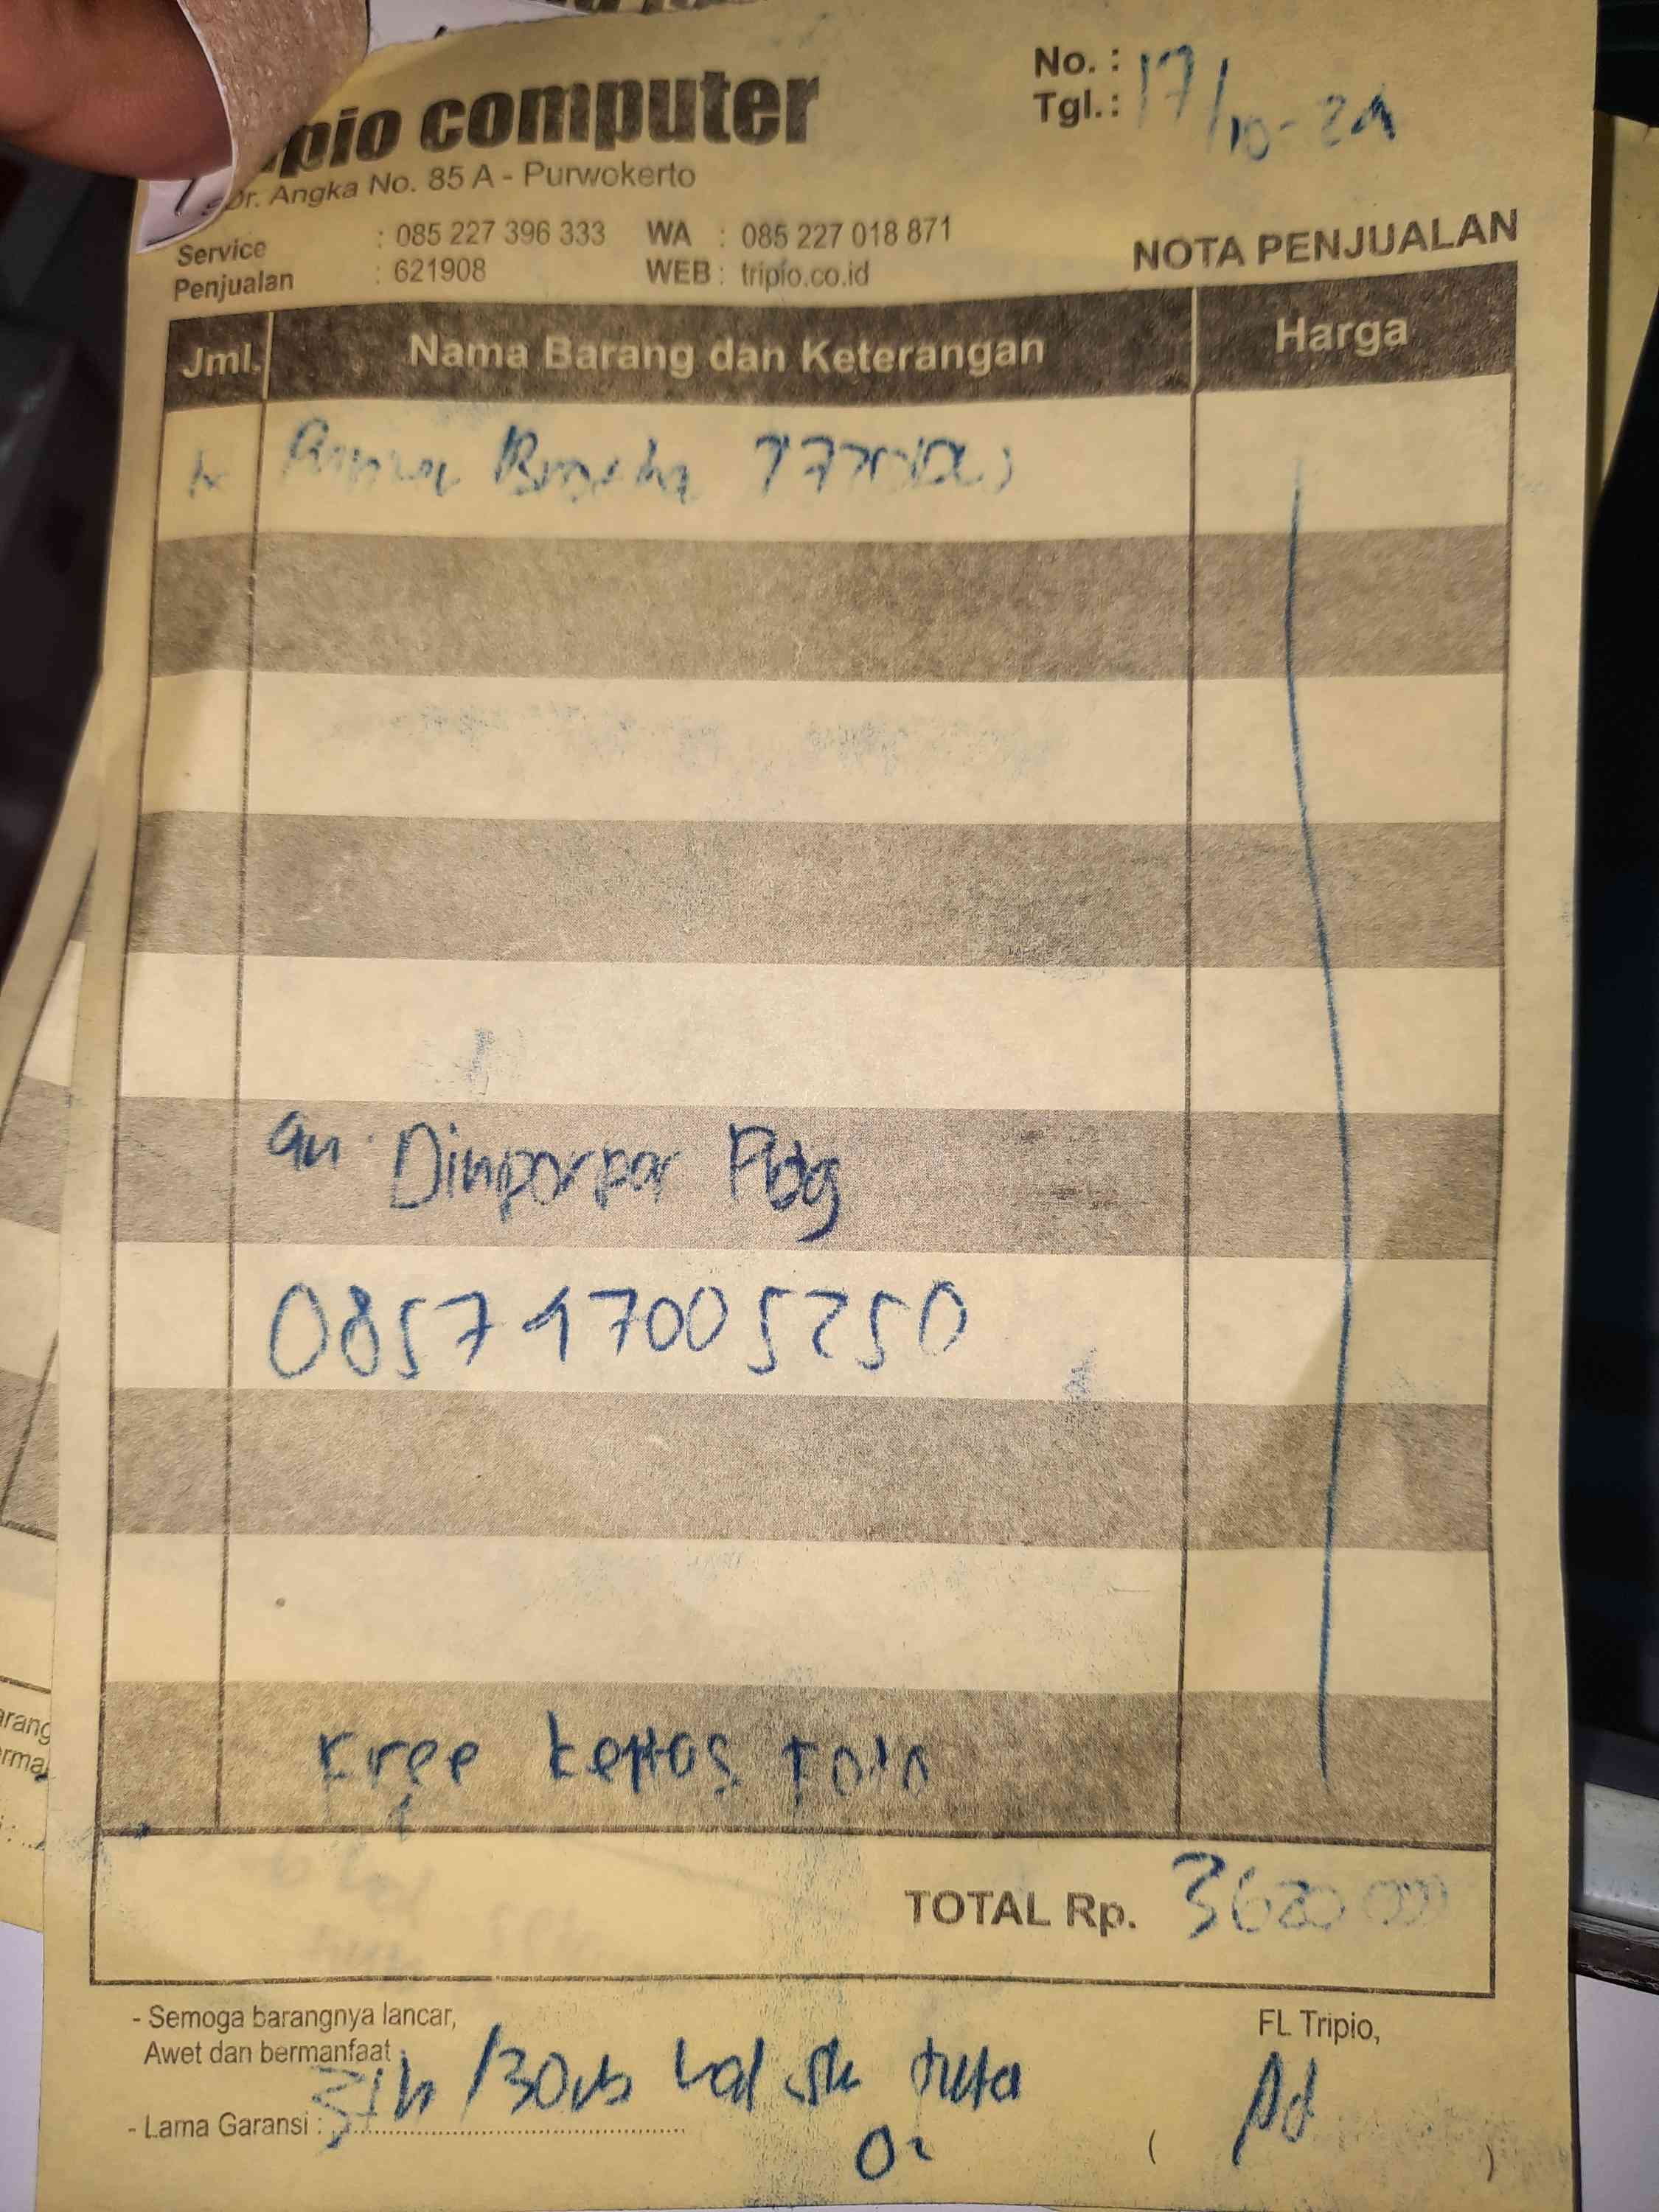 pio computer
Dr. Angka No. 85 A - Purwokerto
No. :
Tgl. : 17/10-24
Service : 085 227 396 333 WA : 085 227 018 871
Penjualan : 621908 WEB : tripio.co.id
NOTA PENJUALAN
Jml. Nama Barang dan Keterangan Harga
an. Dinporpar Pbg
085747005250
Free kertas
TOTAL Rp. 3620000
- Semoga barangnya lancar,
Awet dan bermanfaat
FL Tripio,
- Lama Garansi : 3th /30rb
( )
arang